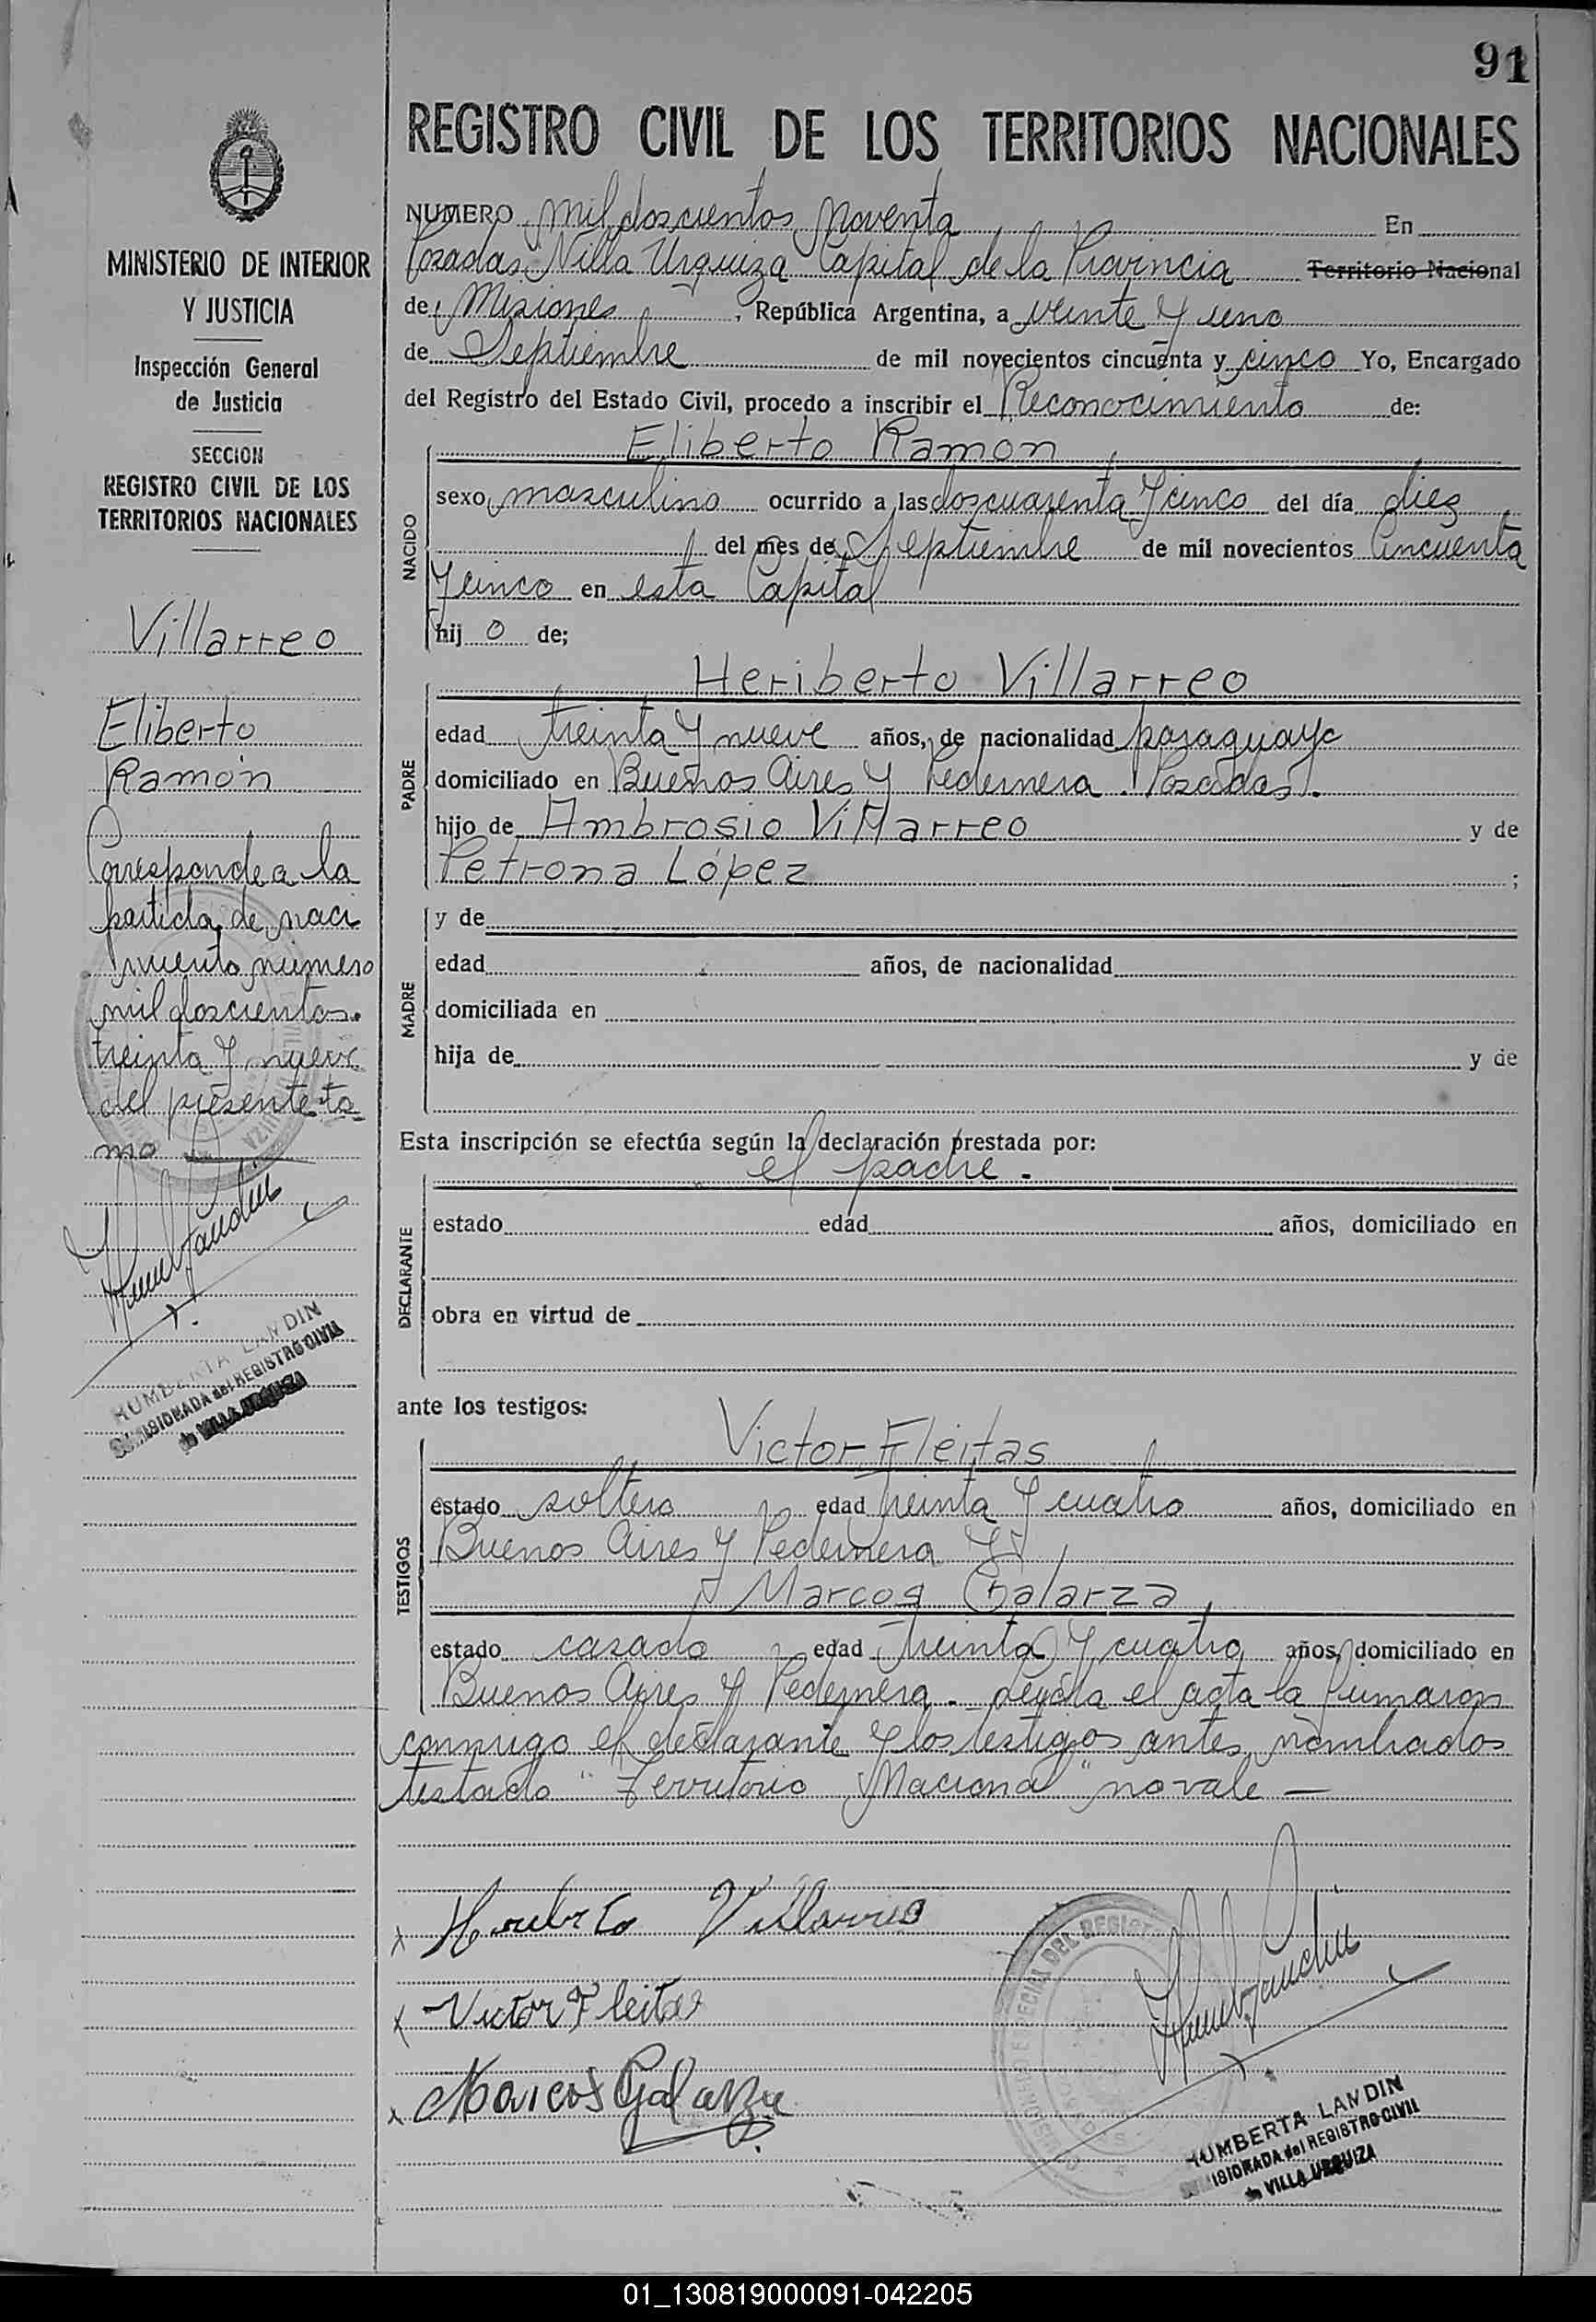 91
REGISTRO CIVIL DE LOS TERRITORIOS NACIONALES
MINISTERIO DE INTERIOR
Y JUSTICIA
Inspección General
de Justicia
SECCION
REGISTRO CIVIL DE LOS
TERRITORIOS NACIONALES
Villarreo
Eliberto
Ramón
Corresponde a la
partida de naci
miento número
mil doscientos
treinta y nueve
del presente to
mo
HUMBERTA LANDIN
COMISIONADA del REGISTRO CIVIL
de VILLA URQUIZA
NUMERO mil doscientos noventa En
Posadas Villa Urquiza Capital de la Provincia Territorio Nacional
de Misiones, República Argentina, a veinte y uno
de Septiembre de mil novecientos cincuenta y cinco Yo, Encargado
del Registro del Estado Civil, procedo a inscribir el Reconocimiento de:
Eliberto Ramon
NACIDO
sexo masculino ocurrido a las dos cuarenta y cinco del día diez
del mes de Septiembre de mil novecientos cincuenta
y cinco en esta Capital
hijo de;
Heriberto Villarreo
PADRE
edad treinta y nueve años, de nacionalidad paraguaya
domiciliado en Buenos Aires y Pedernera. Posadas.
hijo de Ambrosio Villarreo y de
Petrona López ;
MADRE
y de
edad años, de nacionalidad
domiciliada en
hija de y de
Esta inscripción se efectúa según la declaración prestada por:
el padre.
DECLARANTE
estado edad años, domiciliado en
obra en virtud de
ante los testigos:
Victor Fleitas
TESTIGOS
estado soltero edad treinta y cuatro años, domiciliado en
Buenos Aires y Pedernera y
Marcos Galarza
estado casado edad treinta y cuatro años, domiciliado en
Buenos Aires y Pedernera. Leyda el acta la firmaron
conmigo el declarante y los testigos antes nombrados
testado "Territorio Nacional" no vale —
Heriberto Villarreo
Victor Fleitas
Marcos Galarza
HUMBERTA LANDIN
COMISIONADA del REGISTRO CIVIL
de VILLA URQUIZA
01_130819000091-042205